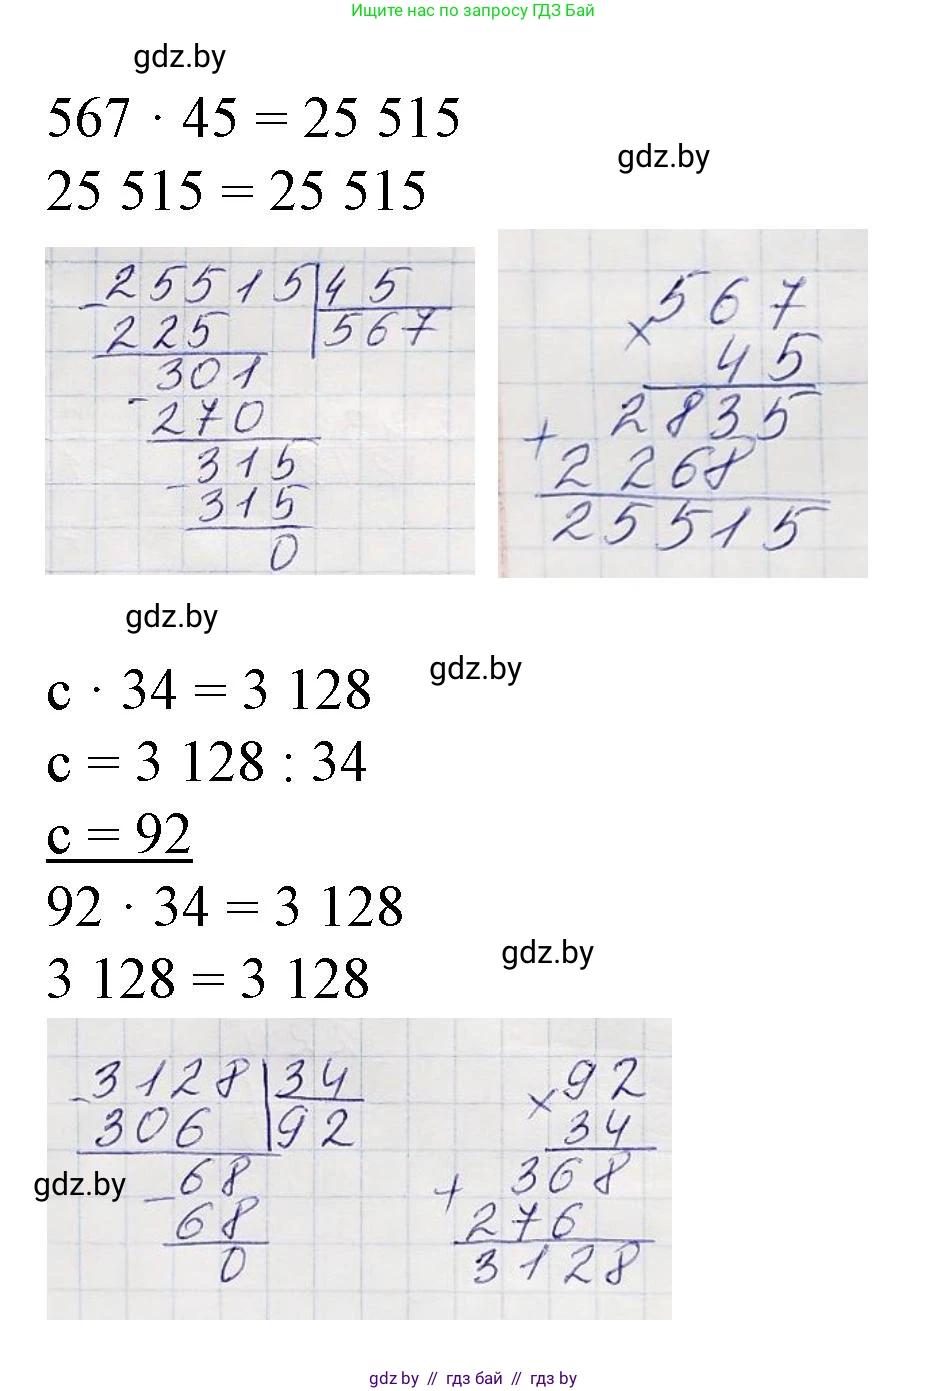 Ищите нас по запросу ГДЗ Бай
gdz.by
567 · 45 = 25 515
gdz.by
25 515 = 25 515
- 25515 | 45
225 | 567
301
- 270
315
- 315
0
567
× 45
2835
+ 2268
25515
gdz.by
gdz.by
c · 34 = 3 128
c = 3 128 : 34
c = 92
92 · 34 = 3 128
gdz.by
3 128 = 3 128
- 3128 | 34
306 | 92
68
- 68
0
92
× 34
368
+ 276
3128
gdz.by
gdz.by // гдз бай // gdz by